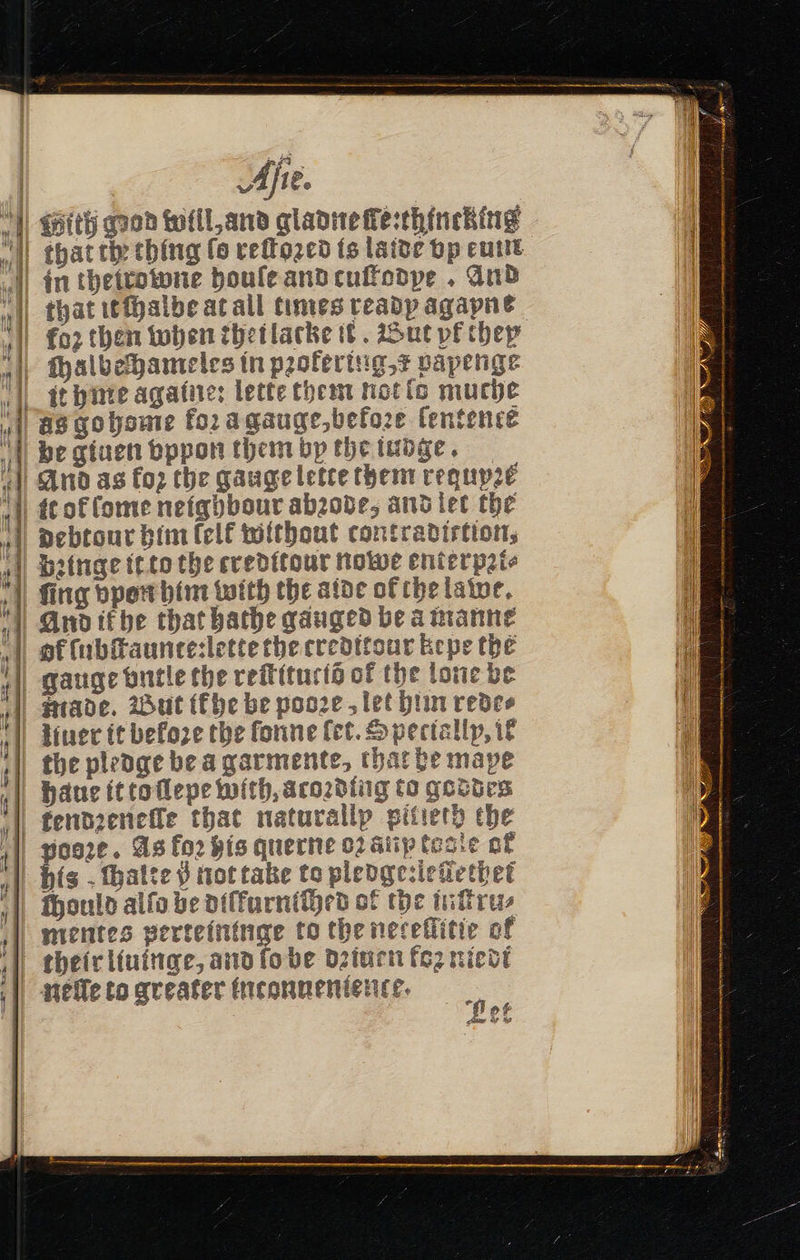 Asie.
with good will, and gladnesse: thincking
that the thing so restored is laide vp euin
in their owne house and custodye . And
that it shalbe at all times ready agayne
for then when thei lacke it . But yf they
shalbe shameles in profering, & payenge
it hime againe: lette them not so muche
as go home for a gauge, before sentence
be giuen vppon them by the iudge.
And as for the gauge lette them requyre
it of some neighbour abrode, and let the
debtour him self without contradiction,
bringe it to the creditour nowe enterpri-
sing vpon him with the aide of the lawe.
And if he that hathe gauged be a manne
of substaunce: lette the creditour kepe the
gauge vntle the restituciō of the lone be
made. But if he be poore , let him rede-
liuer it before the sonne set. Specially, if
the pledge be a garmente, that he maye
haue it to slepe with, acording to goddes
tendrenesse that naturally pitieth the
poore. As for his querne or any toole of
his . shalte yͤ not take to pledge: lesse thei
should also be disfurnished of the instru-
mentes perteininge to the necessitie of
their liuinge, and so be driuen for niedi
nesse to greater inconuenience.
Let